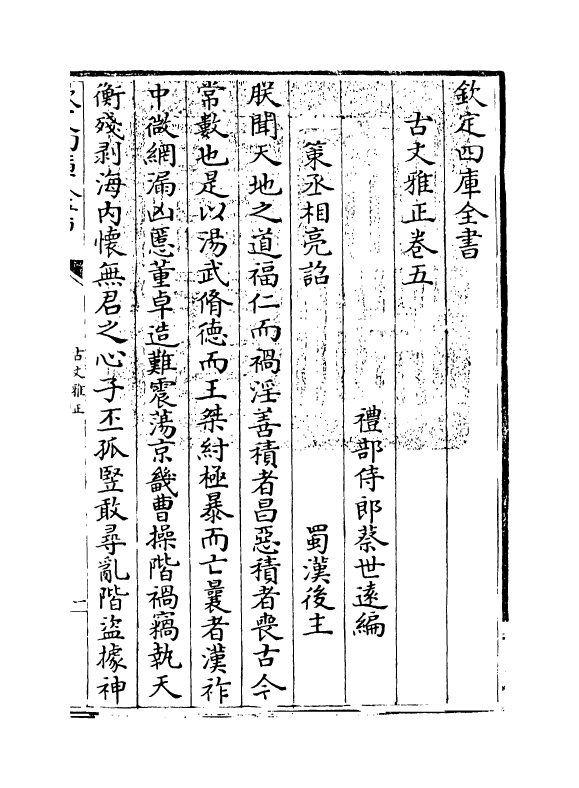 欽定四庫全書
古文雅正卷五
禮部侍郎蔡世遠編
策丞相亮詔
蜀漢後主
朕聞天地之道福仁而禍淫善積者昌惡積者喪古今
常數也是以湯武脩德而王桀紂極暴而亡曩者漢祚
中微網漏凶慝董卓造難震蕩京畿曹操階禍竊執天
衡殘剥海内懷無君之心子丕孤豎敢尋亂階盜據神
古文雅正
一